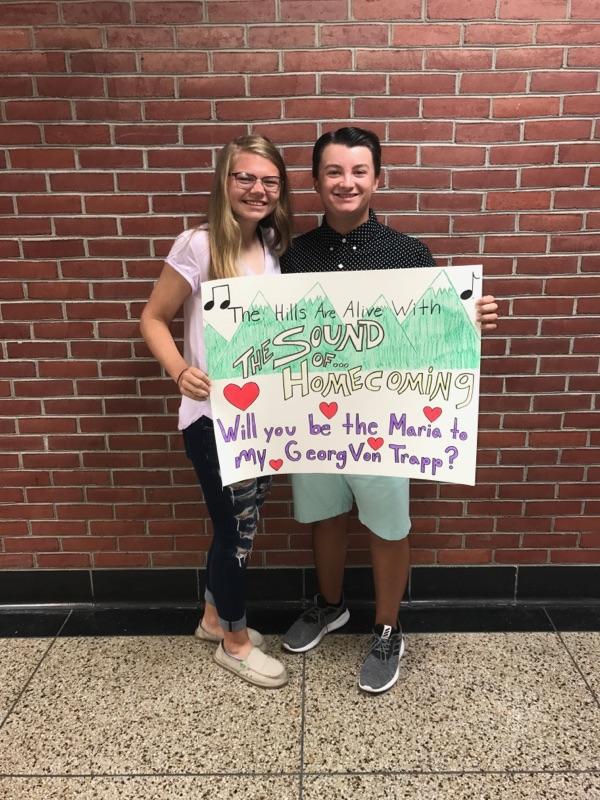 The Hills Are Alive With
THE SOUND
OF...
HOMECOMING
Will you be the Maria to
my Georg Von Trapp?